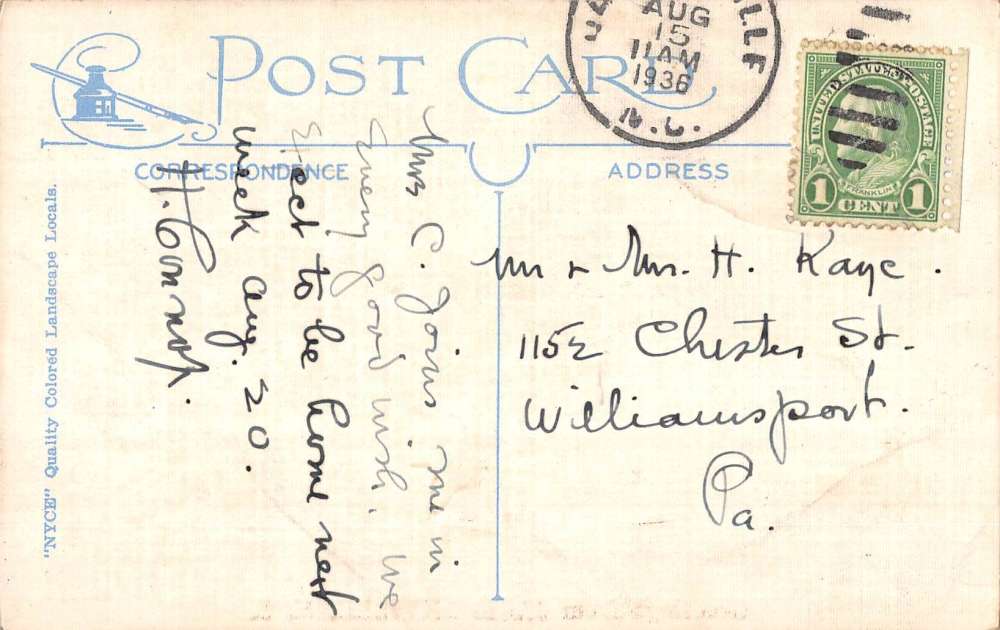 POST CARD
AUG
15
11 AM
1936
N.C.
UNITED STATES POSTAGE
FRANKLIN
1 CENT 1
CORRESPONDENCE
ADDRESS
Mrs C. Joins me in
every good wish. we
Xect to be home next
week Aug. 20.
Mr & Mrs. H. Kaye.
1152 Chester St.
Williamsport.
Pa.
"NYCE" Quality Colored Landscape Locals.